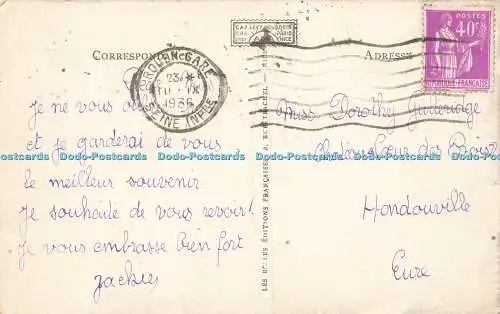 CORRESPONDANCE
ADRESSE
ROUEN-GARE
23
10 - IX
1936
SEINE INFRE
POSTES
40c
RÉPUBLIQUE FRANÇAISE
Je ne vous
et je garderai de vous
le meilleur souvenir.
Je souhaite de vous revoir!
Je vous embrasse bien fort
Jackie
Miss Dorothy
des Bois
Hondouville
Eure
ÉDITIONS FRANÇAISES
Dodo-Postcards Dodo-Postcards Dodo-Postcards Dodo-Postcards Dodo-Postcards